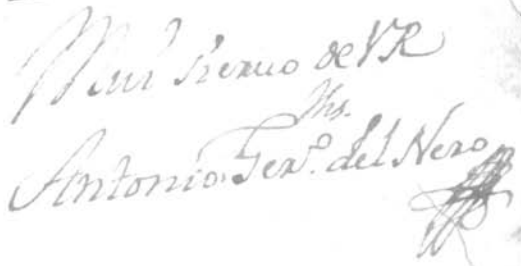 Menr Siervo de VR
Jhs.
Antonio Gerº. del Nero